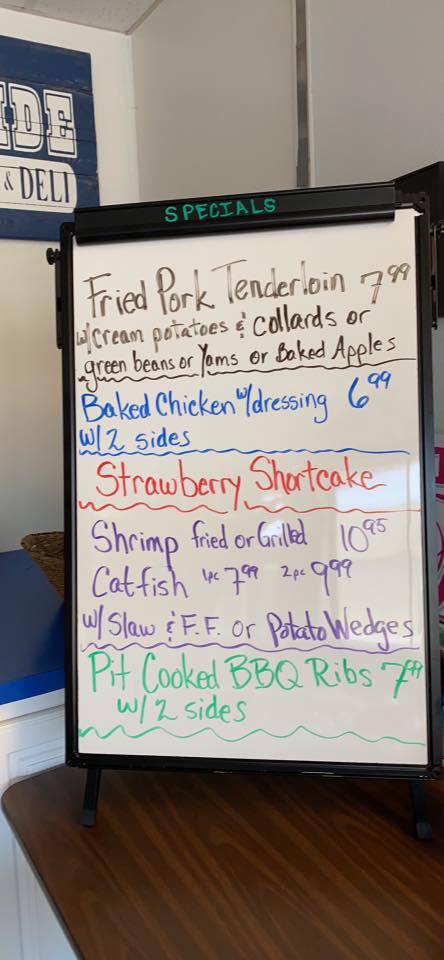 IDE
& DELI
SPECIALS
Fried Pork Tenderloin 7.99
w/cream potatoes & collards or
green beans or Yams or Baked Apples
Baked Chicken w/dressing 6.99
w/2 sides
Strawberry Shortcake
Shrimp fried or Grilled 10.95
Catfish 1pc 7.99 2pc 9.99
w/Slaw & F.F. or Potato Wedges
Pit Cooked BBQ Ribs 7.99
w/2 sides